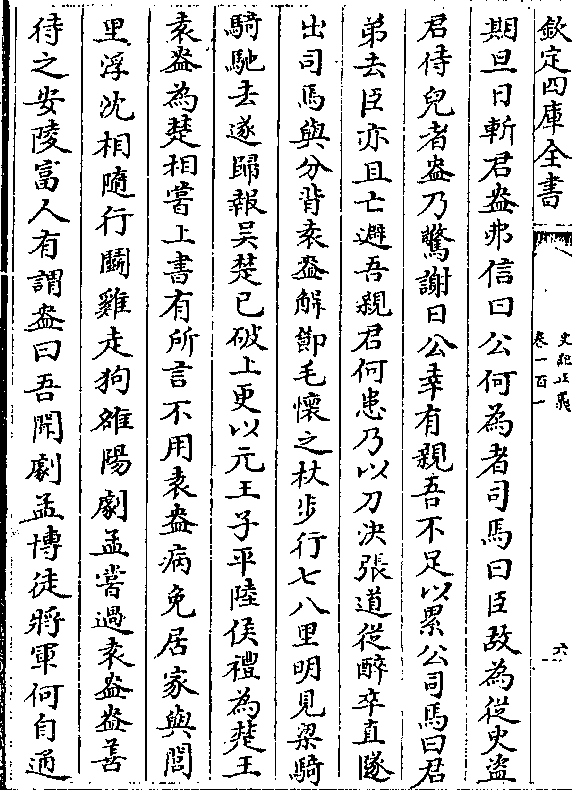 欽定四庫全書
史記正義
卷一百一
六
期旦日斬君盎弗信曰公何為者司馬曰臣故為從史盜
君侍兒者盎乃驚謝曰公幸有親吾不足以累公司馬曰君
弟去臣亦且亡避吾親君何患乃以刀決張道從醉卒直隧
出司馬與分背袁盎解節毛懷之杖步行七八里明見梁騎
騎馳去遂歸報吳楚已破上更以元王子平陸侯禮為楚王
袁盎為楚相嘗上書有所言不用袁盎病免居家與閭
里浮沈相隨行鬭雞走狗雒陽劇孟嘗過袁盎盎善
待之安陵富人有謂盎曰吾聞劇孟博徒將軍何自通